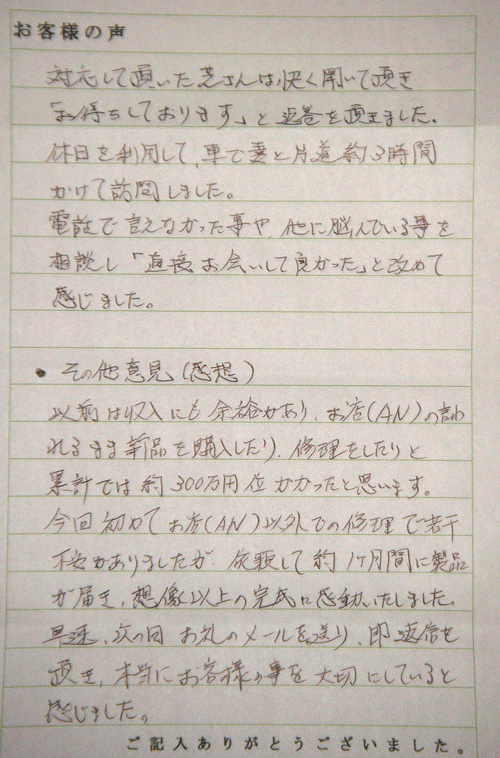 お客様の声
対応して頂いた芝さんは快く聞いて頂き
「お待ちしております」と返答を頂きました。
休日を利用して、車で妻と片道約3時間
かけて訪問しました。
電話で言えなかった事や、他に悩んでいる事を
相談し「直接お会いして良かった」と改めて
感じました。
• その他意見(感想)
以前は収入にも余裕があり、お店(AN)の言わ
れるまま新品を購入したり、修理をしたりと
累計では約300万円位かかったと思います。
今回初めてお店(AN)以外での修理で若干
不安がありましたが、依頼して約1ヶ月間に製品
が届き、想像以上の完成に感動いたしました。
早速、次の日お礼のメールを送り、即返信を
頂き、本当にお客様の事を大切にしていると
感じました。
ご記入ありがとうございました。